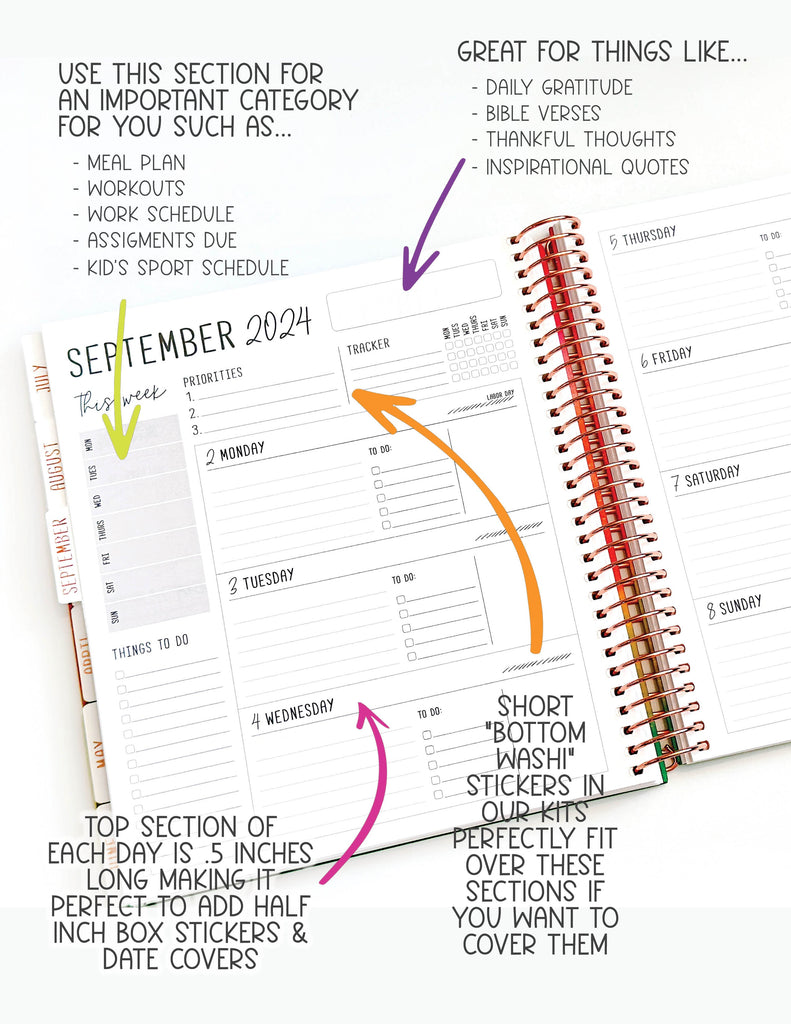 USE THIS SECTION FOR
AN IMPORTANT CATEGORY
FOR YOU SUCH AS...
- MEAL PLAN
- WORKOUTS
- WORK SCHEDULE
- ASSIGMENTS DUE
- KID'S SPORT SCHEDULE
GREAT FOR THINGS LIKE...
- DAILY GRATITUDE
- BIBLE VERSES
- THANKFUL THOUGHTS
- INSPIRATIONAL QUOTES
JULY
AUGUST
SEPTEMBER
APRIL
MAY
SEPTEMBER 2024
This week
MON
TUES
WED
THURS
FRI
SAT
SUN
THINGS TO DO
PRIORITIES
1.
2.
3.
TRACKER
MON
TUES
WED
THURS
FRI
SAT
SUN
LABOR DAY
2 MONDAY
TO DO:
3 TUESDAY
TO DO:
4 WEDNESDAY
TO DO:
5 THURSDAY
TO DO:
6 FRIDAY
7 SATURDAY
8 SUNDAY
TOP SECTION OF
EACH DAY IS .5 INCHES
LONG MAKING IT
PERFECT TO ADD HALF
INCH BOX STICKERS &
DATE COVERS
SHORT
"BOTTOM
WASHI"
STICKERS IN
OUR KITS
PERFECTLY FIT
OVER THESE
SECTIONS IF
YOU WANT TO
COVER THEM